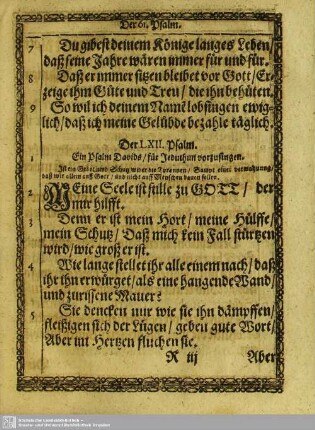 Der 61. Psalm.
7 Du gibest deinem Könige langes Leben/
daß seine Jahre wären immer für und für.
8 Daß er immer sitzen bleibet vor Gott/ Er-
zeige ihm Güte und Treu/ die ihn behüten.
9 So wil ich deinem Namẽ lobsingen ewig-
lich/ daß ich meine Gelübde bezahle täglich.
Der LXII. Psalm.
1 Ein Psalm Davids/ für Jeduthun vorzusingen.
Ist ein Gebet
daß wir allein auff Gott/ und nicht auff Menschen bauen sollen.
2 MEine Seele ist stille zu GOTT/ der
mir hilfft.
3 Denn er ist mein Hort/ meine Hülffe/
mein Schutz/ Daß mich kein Fall stürtzen
wird/ wie groß er ist.
4 Wie lange stellet ihr alle einem nach/ daß
ihr ihn erwürget/ als eine hangende Wand/
und zurissene Mauer?
5 Sie dencken nur wie sie ihn dämpffen/
fleißigen sich der Lügen/ geben gute Wort/
Aber im Hertzen fluchen sie.
R iij Aber